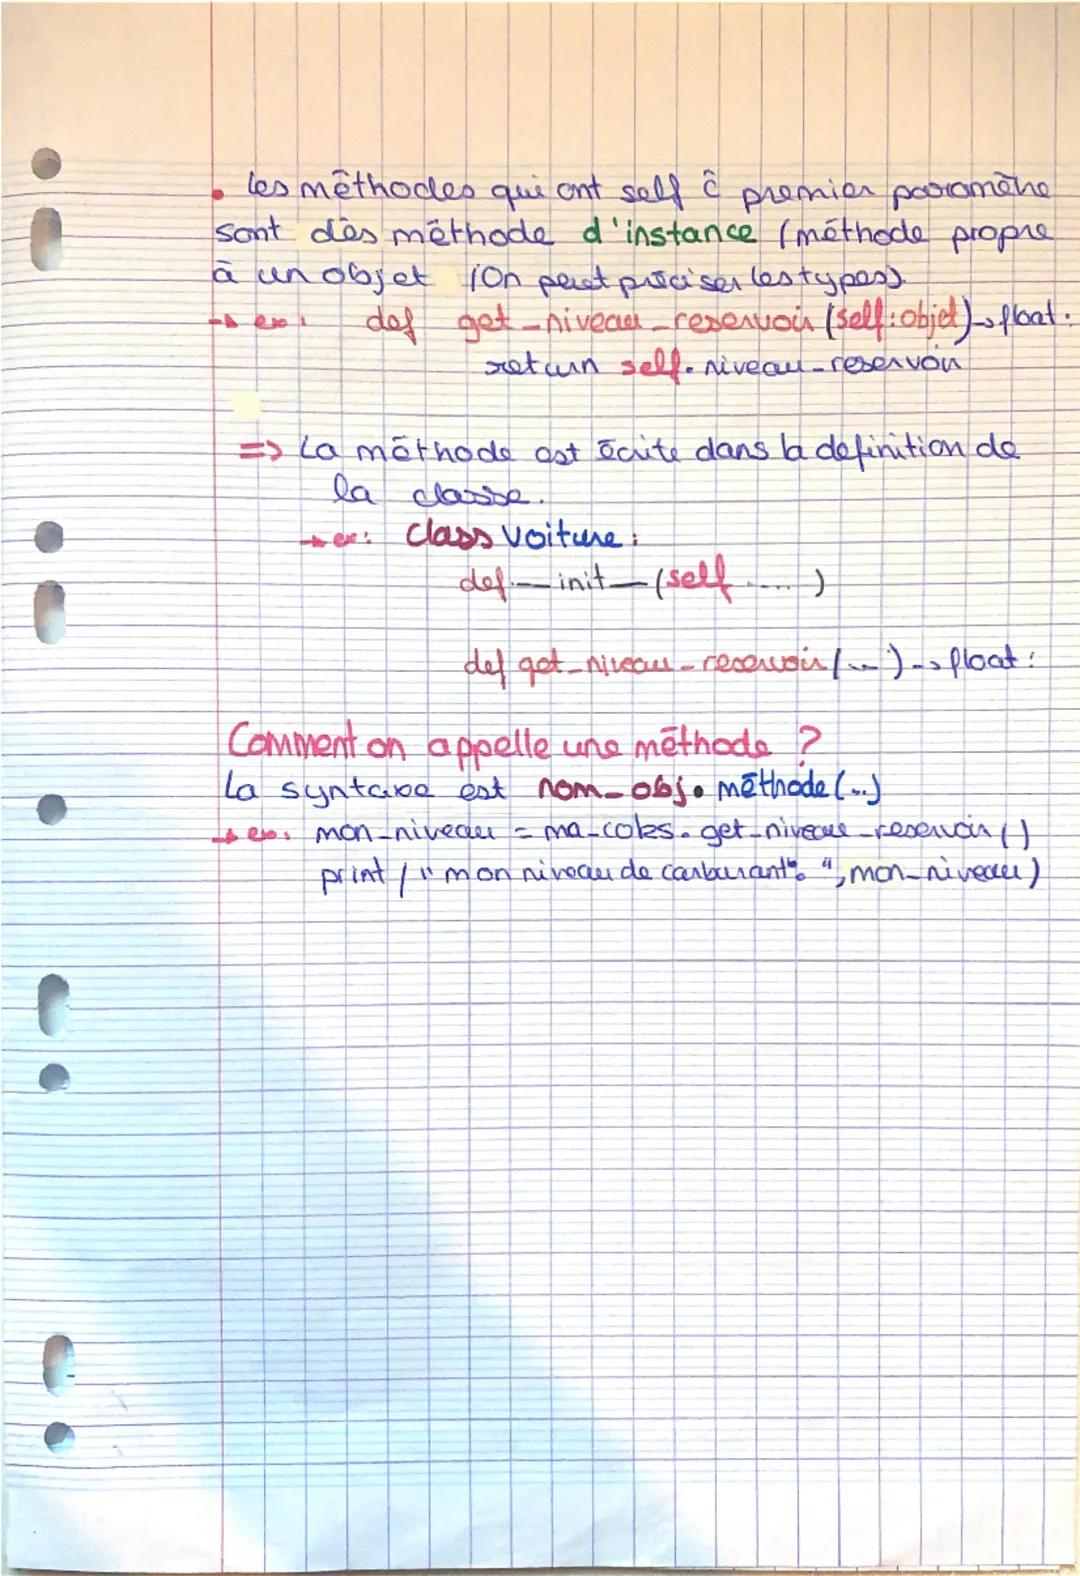 • les méthodes qui ont self ĉ premier paramètre
sont des méthode d'instance (méthode propre
à un objet (On peut préciser les types).
→ ex: def get_niveau_reservoir (self: objet) → float:
return self.niveau_reservoir
=> La méthode est écrite dans la definition de
la classe.
→ ex: class voiture:
def __init__ (self .....)
def get_niveau_reservoir (...) → float:
Comment on appelle une méthode ?
La syntaxe est nom_obj.méthode(...)
→ ex: mon_niveau = ma_coles.get_niveau_reservoir ()
print ("mon niveau de carburant: ", mon_niveau)